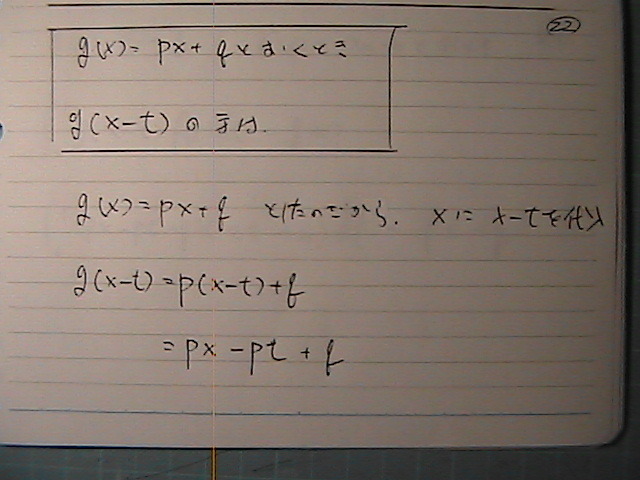 22
g(x)=px+qとおくとき
g(x-t)の式は.
g(x)=px+q としたのだから. xに x-tを代入
g(x-t)=p(x-t)+q
=px-pt+q